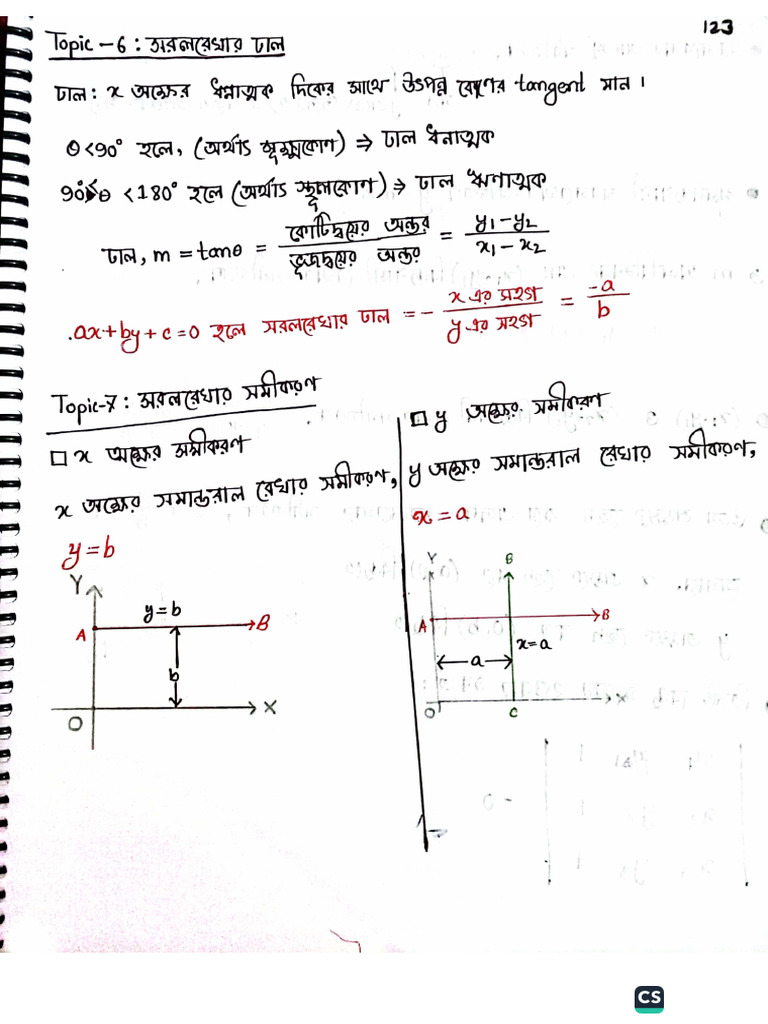 123
Topic-6: সরলরেখার ঢাল
ঢাল: x অক্ষের ধনাত্মক দিকের সাথে উৎপন্ন কোণের tangent মান।
θ<90° হলে, (অর্থাৎ সূক্ষ্মকোণ) ⇒ ঢাল ধনাত্মক
90°<θ <180° হলে (অর্থাৎ স্থূলকোণ) ⇒ ঢাল ঋণাত্মক
ঢাল, m = tanθ = কোটিদ্বয়ের অন্তর / ভূজদ্বয়ের অন্তর = y₁-y₂ / x₁-x₂
.ax+by+c=0 হলে সরলরেখার ঢাল = - x এর সহগ / y এর সহগ = -a / b
Topic-7: সরলরেখার সমীকরণ
□ x অক্ষের সমীকরণ
x অক্ষের সমান্তরাল রেখার সমীকরণ,
y=b
Y
y=b
A
B
b
X
O
□ y অক্ষের সমীকরণ
y অক্ষের সমান্তরাল রেখার সমীকরণ,
x=a
Y
B
A
B
x=a
a
O
C
X
CS